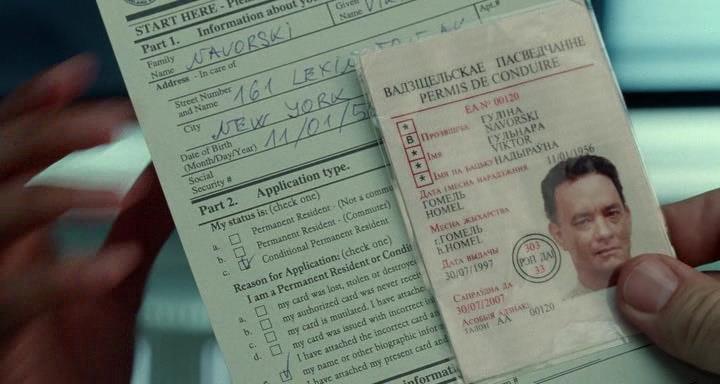 START HERE - Please
Part 1. Information about you
Given
Name
Apt.#
Family
Name
NAVORSKI
Address - In care of
Street Number
and Name
161
City
NEW YORK
Date of Birth
(Month/Day/Year)
11/01/5
Social
Security #
Part 2. Application type.
My status is: (check one)
a. Permanent Resident - (Not a commu
b. Permanent Resident - (Commuter)
c. Conditional Permanent Resident
Reason for Application: (check one)
I am a Permanent Resident or Condit
a. my card was lost, stolen or destroyed
b. my authorized card was never rece
c. my card is mutilated. I have attached
d. my card was issued with incorrect
I have attached the incorrect card a
my name or other biographic infor
I have attached my present card and
ВАДЗІЦЕЛЬСКАЕ ПАСВЕДЧАННЕ
PERMIS DE CONDUIRE
ЕА № 00120
В
Прозвішча
ГУЛІНА
NAVORSKI
Імя
ГУЛЬНАРА
VIKTOR
Імя па бацьку
НАДЫРАЎНА
11/01/1956
Дата і месца нараджэння
ГОМЕЛЬ
HOMEL
Месца жыхарства
г.ГОМЕЛЬ
h.HOMEL
Дата выдачы
30/07/1997
303
РЭП ДАІ
33
Сапраўдна да
30/07/2007
Асобыя адзнакі:
ТАЛОН АА 00120